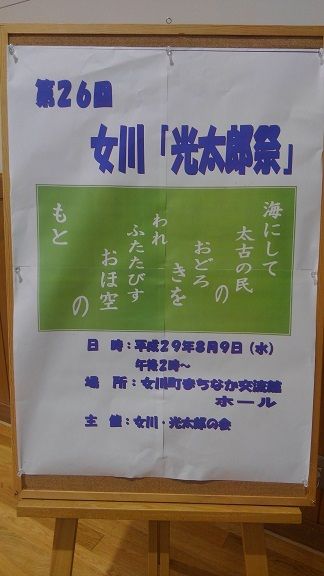 第26回
女川「光太郎祭」
海にして
太古の民
の
おどろ
きを
われ
ふたたびす
おほ空
の
もと
日　時：平成29年8月9日（水）
午後2時～
場　所：女川町まちなか交流館
ホール
主　催：女川・光太郎の会